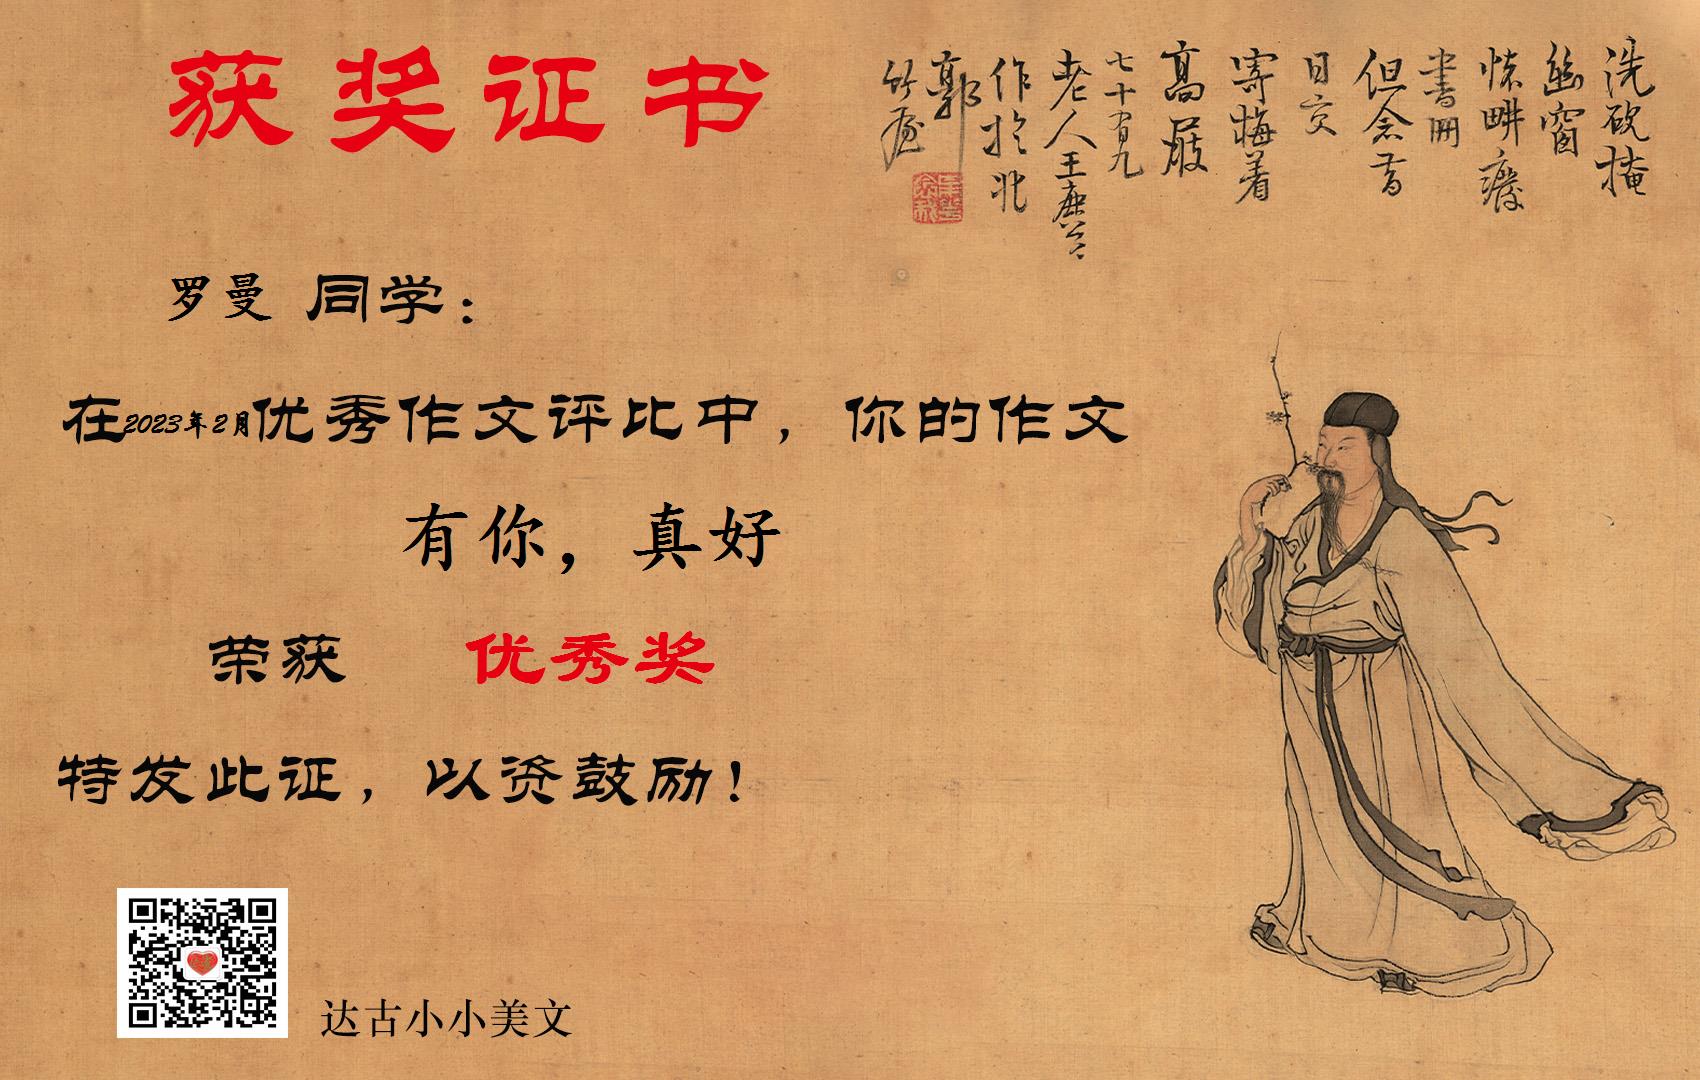 获奖证书
罗曼 同学：
在2023年2月优秀作文评比中，你的作文
有你，真好
荣获 优秀奖
特发此证，以资鼓励！
达古小小美文
洗砚掩
幽窗
怀畊廢
書冊
但念昔
日交
寄梅着
高屐
七十有九
老人王
作於北
郭
竹屋